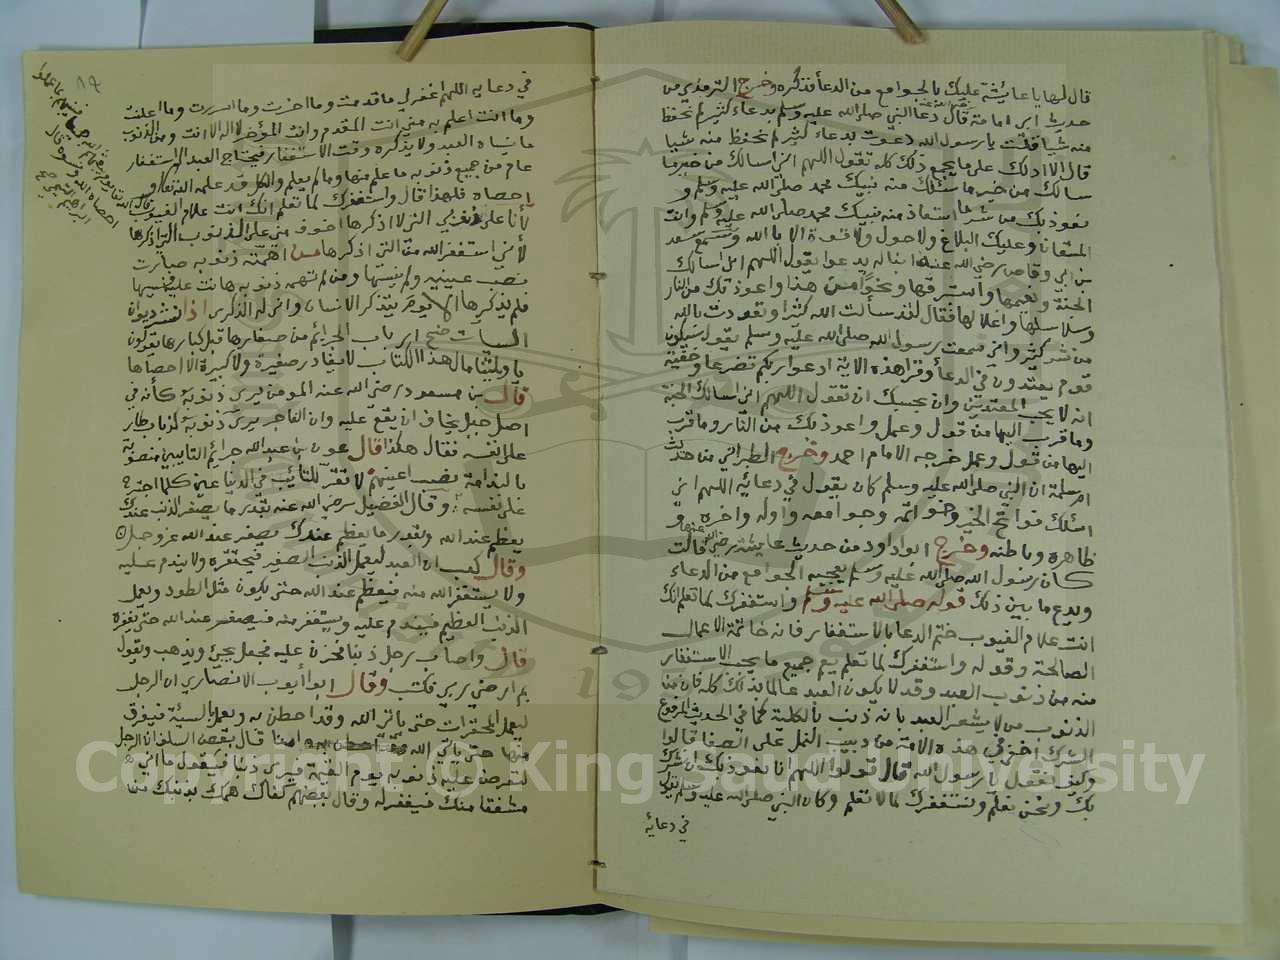 قال لها يا عايشة عليك بالجوامع من الدعأ فذكره وخرج الترمذي من
حديث ابي امامة قال دعا النبي صلى الله عليه وسلم بدعاء كثير لم نحفظ
منه شيا فقلت يا رسول الله دعوت بدعاء كثير لم نحفظ منه شيا
قال الا ادلك على ما يجمع ذلك كله تقول اللهم اني اسالك من خير ما
سالك من خير ما سئلك منه نبيك محمد صلى الله عليه وسلم و
نعوذ بك من شر ما استعاذ منه نبيك محمد صلى الله عليه وسلم وانت
المستعان وعليك البلاغ ولا حول ولا قوة الا بالله وسمع سعد
بن ابي وقاص رضي الله عنه ابنا له يدعوا يقول اللهم اني اسالك
الجنة ونعيمها واستبرقها ونحوا من هذا واعوذ بك من النار
وسلاسلها واغلالها فقال لقد سألت الله كثيرا وتعوذت بالله
من شر كثير واني سمعت رسول الله صلى الله عليه وسلم يقول سيكون
قوم يعتدون في الدعأ وقرا هذه الاية ادعوا ربكم تضرعا وخفية
انه لا يحب المعتدين وان بحسبك ان تقول اللهم اني اسالك الجنة
وما قرب اليها من قول وعمل واعوذ بك من النار وما قرب
اليها من قول وعمل خرجه الامام احمد وخرج الطبراني من حديث
ام سلمة ان النبي صلى الله عليه وسلم كان يقول في دعائه اللهم اني
اسئلك فواتح الخير وخواتمه وجوامعه واوله واخره و
ظاهره وباطنه وخرج ابوا داود من حديث عايشة رضي الله عنها قالت
كان رسول الله صلى الله عليه وسلم يعجبه الجوامع من الدعاء
ويدع ما بين ذلك قوله صلى الله عليه وسلم واستغفرك لما تعلم انك
انت علام الغيوب ختم الدعا بالاستغفار فانه خاتمة الاعمال
الصالحة وقوله واستغفرك لما تعلم يعم جميع ما يجب الاستغفار
منه من ذنوب العبد وقد لا يكون العبد عالما بذلك كله فان من
الذنوب من لا يشعر العبد بانه ذنب بالكلية كما في الحديث المرفوع
الشرك اخفى في هذه الامة من دبيب النمل على الصفا قالوا
وكيف نفعل يا رسول الله قال قولوا اللهم انا نعوذ بك ان نشرك
بك ونحن نعلم ونستغفرك لما لا نعلم وكان النبي صلى الله عليه وسلم يقول
في دعائه
١٩
في دعايه اللهم اغفر لي ما قدمت وما اخرت وما اسررت وما اعلنت
وما انت اعلم به مني انت المقدم وانت المؤخر لا اله الا انت ومن الذنوب
ما ينساه العبد ولا يذكره وقت الاستغفار فيحتاج العبد الى استغفار
عام من جميع ذنوبه ما علم منها وما لم يعلم والكل قد علمه الله تعالى و
احصاه فلهذا قال واستغفرك لما تعلم انك انت علام الغيوب
لأنا على ذنوبي التي لا اذكرها اخوف مني على الذنوب التي اذكرها
لأني استغفر الله من التي اذكرها من اهمته ذنوبه صارت
نصب عينيه ولم ينسها ومن لم تهمه ذنوبه هانت عليه فنسيها
فلم يذكرها الا يوم يتذكر الانسان وانى له الذكرى اذا نشر ديوان
السيات ضج ارباب الجرائم من صغارها قبل كبارها يقولون
يا ويلتنا مال هذا الكتاب لا يغادر صغيرة ولا كبيرة الا احصاها
قال بن مسعود رضي الله عنه المومن يرى ذنوبه كأنه في
اصل جبل يخاف ان يقع عليه وان الفاجر يرى ذنوبه كذباب طار
على انفه فقال هكذا قال عون بن عبد الله جرائم التايبين منصوبة
بالندامة نصب اعينهم لا تقر للتائب في الدنيا عين كلما اجترح
على نفسه وقال الفضيل رضي الله عنه بقدر ما يصغر الذنب عندك
يعظم عند الله وبقدر ما يعظم عندك يصغر عند الله عز وجل
وقال كعب ان العبد ليعمل الذنب الصغير فيحتقره ولا يندم عليه
ولا يستغفر الله منه فيعظم عند الله حتى يكون مثل الطود ويعمل
الذنب العظيم فيندم عليه ويستغفر منه فيصغر عند الله حتى يغفره
قال واصاب رجل ذنبا فحزن عليه فجعل يجيئ ويذهب ويقول
بم ارضي ربي فكتب وقال ابوا أيوب الانصاري ان الرجل
ليعمل المحقرات حتى ياتي الله وقد احطن به ويعمل السيئة فيفرق
منها حتى ياتي الله امنا قال بعض السلف ان الرجل
لتعرض عليه ذنوبه يوم القيمة فيرى ذنبا فيقول ما اني
مشفقا منك فيغفر له وقال بعضهم كفاك همك بذنبك
Copyright © King Saud University
1957